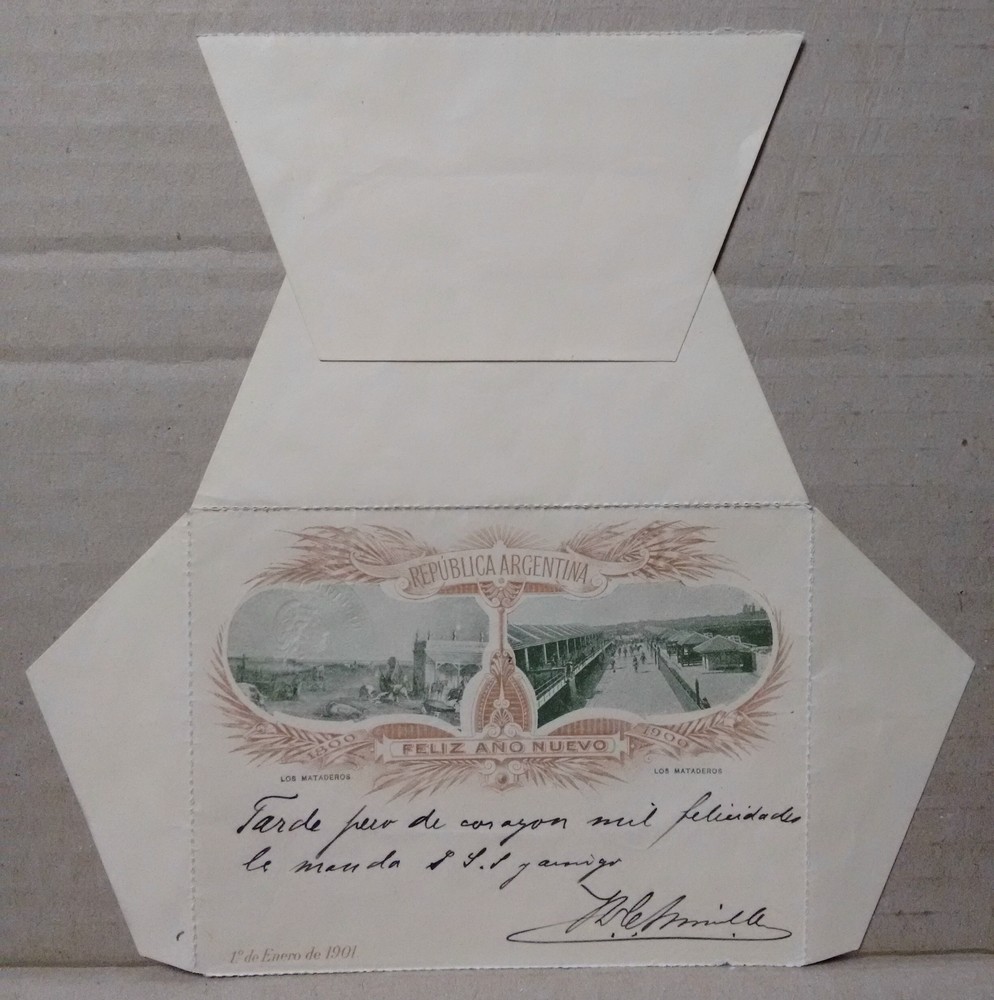 REPÚBLICA ARGENTINA
1800 FELIZ AÑO NUEVO 1900
LOS MATADEROS LOS MATADEROS
Tarde pero de corazon mil felicidades
le manda S S.S y amigo
1º de Enero de 1901